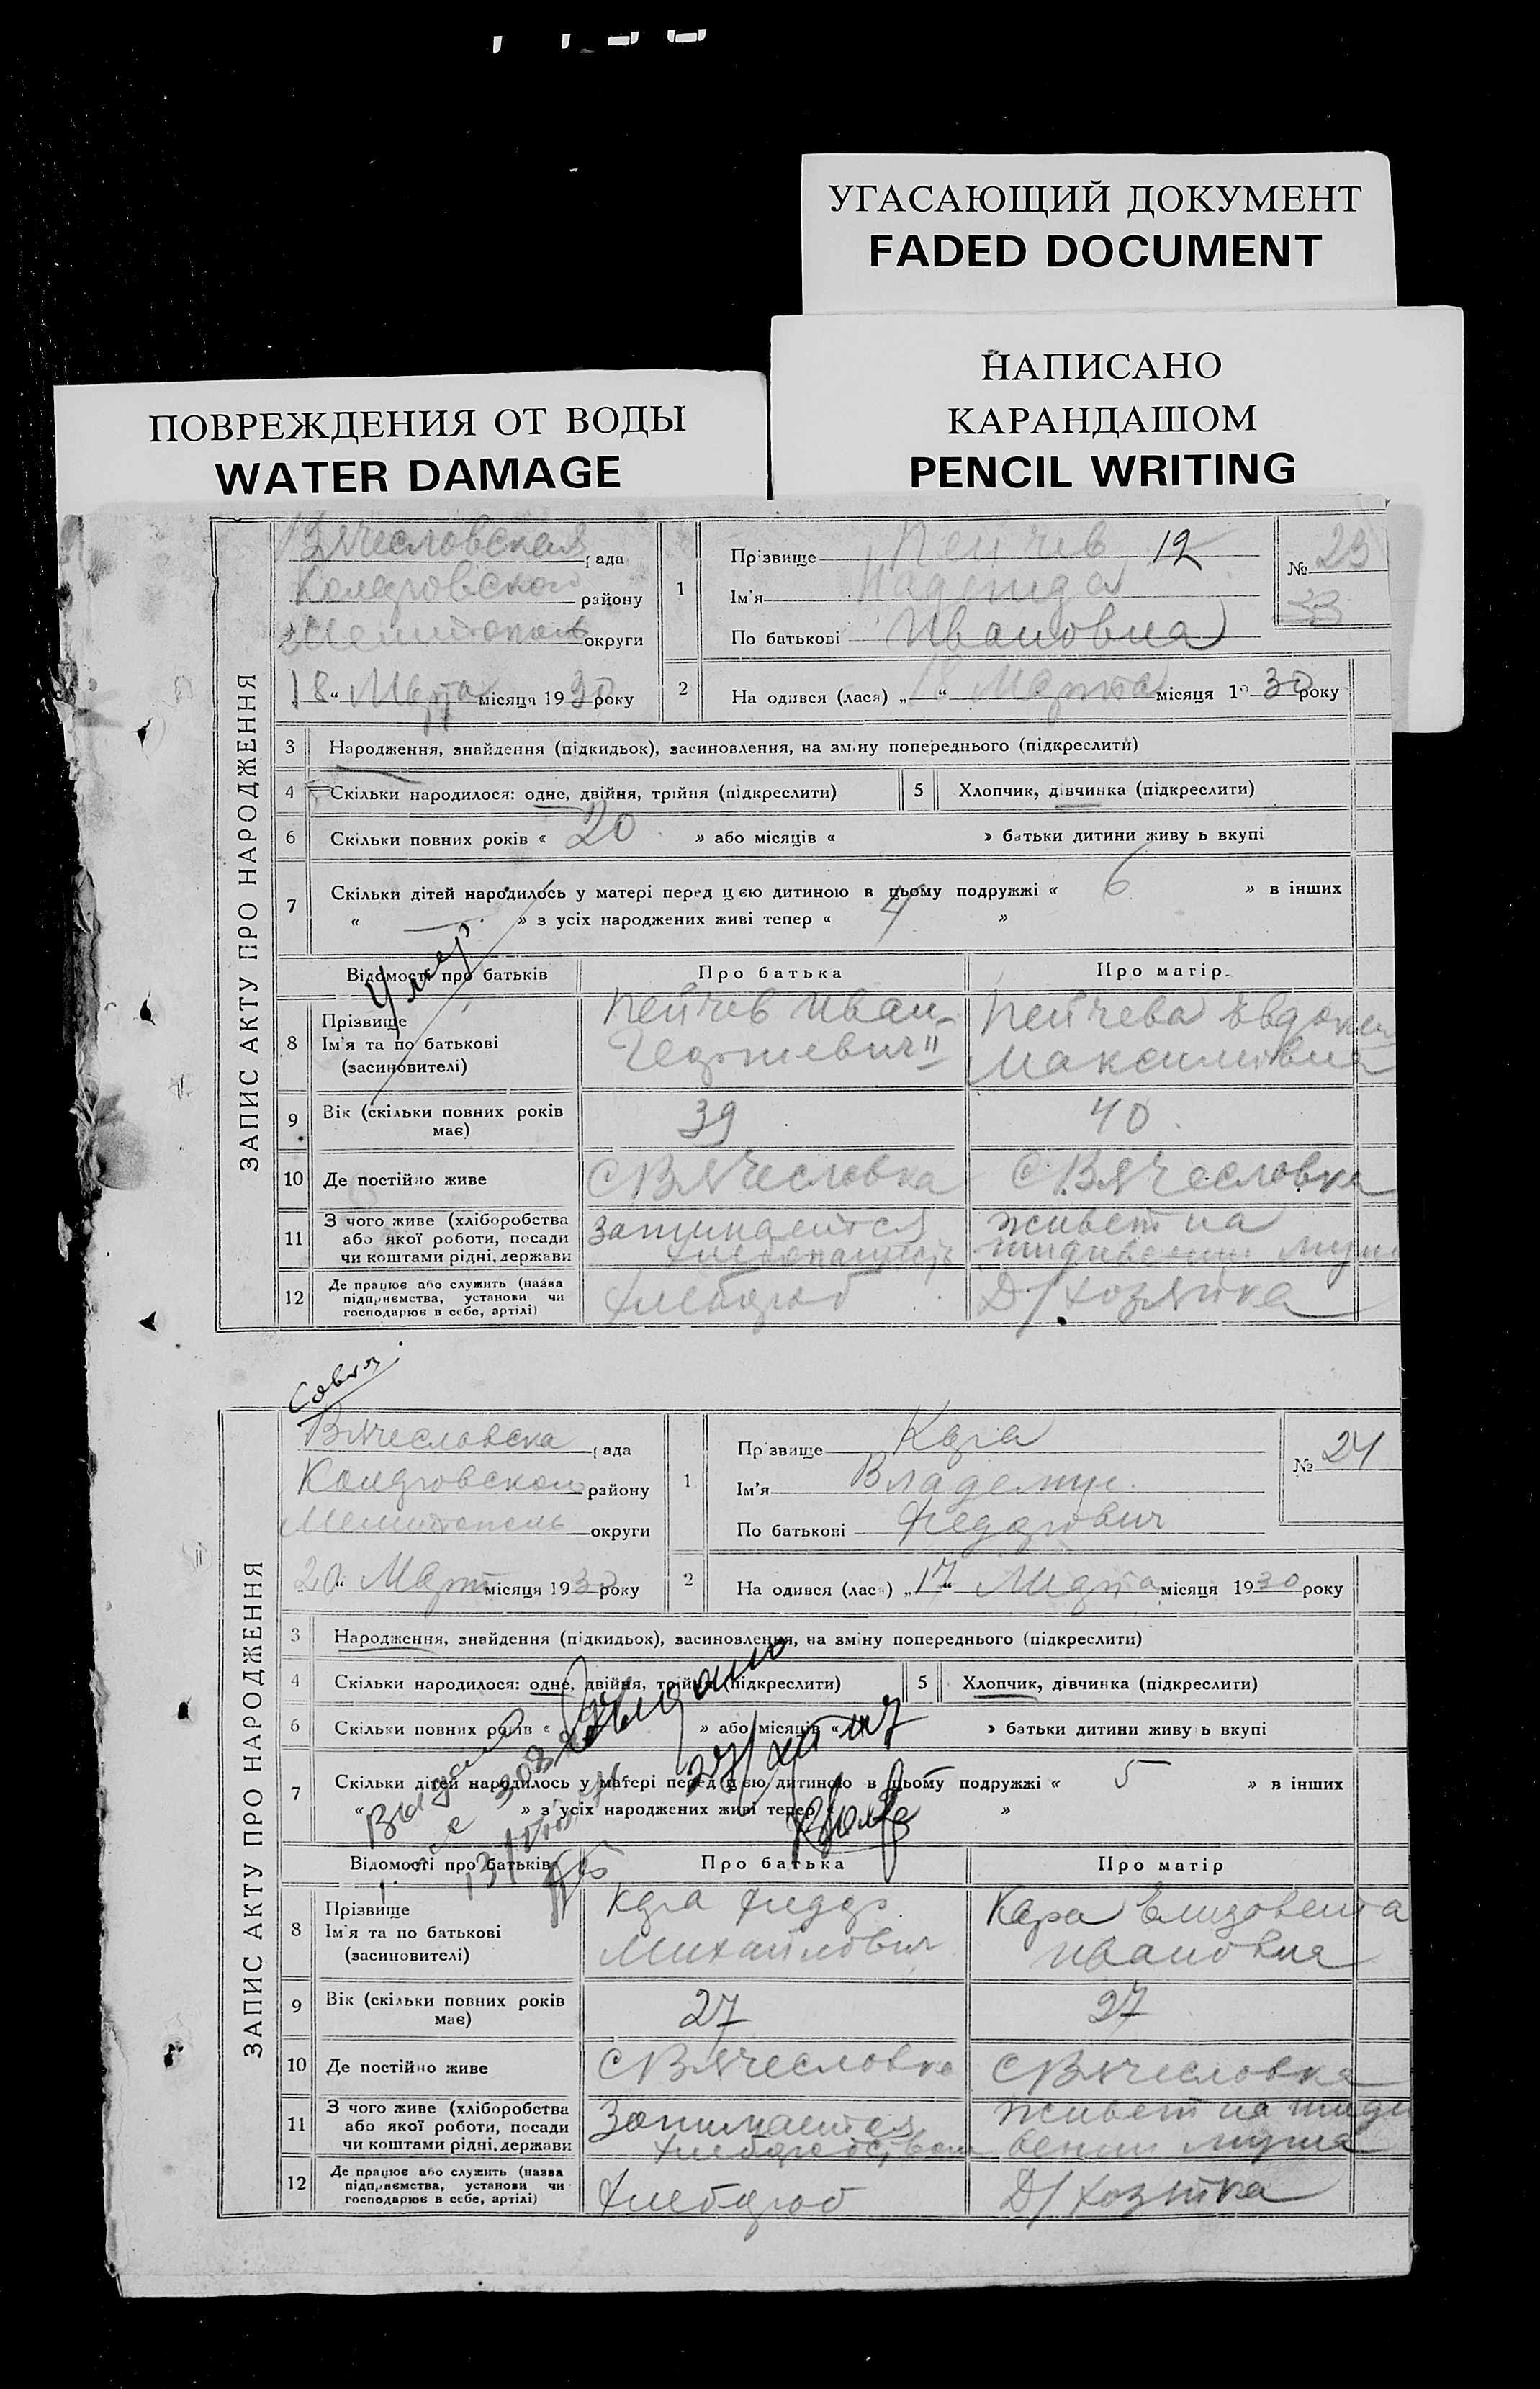 УГАСАЮЩИЙ ДОКУМЕНТ
FADED DOCUMENT
НАПИСАНО
КАРАНДАШОМ
PENCIL WRITING
ПОВРЕЖДЕНИЯ ОТ ВОДЫ
WATER DAMAGE
ЗАПИС АКТУ ПРО НАРОДЖЕННЯ
Вячесловская рада
району
Мелитополь округи
18 " Марта місяця 1930 року
1 Прізвище Пейчев 12
Ім'я Надежда
По батькові Ивановна
№ 23
2 На одився (лася) „ " Марта місяця 1930 року
3 Народження, знайдення (підкидьок), засиновлення, на зміну попереднього (підкреслити)
4 Скільки народилося: одне, двійня, трійня (підкреслити) 5 Хлопчик, дівчинка (підкреслити)
6 Скільки повних років « 20 » або місяців « » батьки дитини живу ь вкупі
7 Скільки дітей народилось у матері перед цією дитиною в цьому подружжі « 6 » в інших
« — » з усіх народжених живі тепер « 4 »
Умер
Відомості про батьків Про батька Про матір
8 Прізвище
Ім'я та по батькові
(засиновителі)
Пейчев Иван
Пейчева Евдокия
Максимовна
9 Вік (скільки повних років має) 39 40
10 Де постійно живе С Вячесловка С Вячесловка
11 З чого живе (хліборобства
або якої роботи, посади
чи коштами рідні, держави
занимается
живет на
12 Де працює або служить (назва
підприємства, установи чи
господарює в себе, артілі)
хлебороб Д/хозяйка
ЗАПИС АКТУ ПРО НАРОДЖЕННЯ
Вячесловска рада
району
Мелитополь округи
20 " Март місяця 1930 року
1 Прізвище Кара
Ім'я Владемир
По батькові Федорович
№ 24
2 На одився (лася) „ 17 " Марта місяця 1930 року
3 Народження, знайдення (підкидьок), засиновлення, на зміну попереднього (підкреслити)
4 Скільки народилося: одне, двійня, трійня (підкреслити) 5 Хлопчик, дівчинка (підкреслити)
6 Скільки повних років « » або місяців « » батьки дитини живу ь вкупі
7 Скільки дітей народилось у матері перед цією дитиною в цьому подружжі « 5 » в інших
« » з усіх народжених живі тепер « »
Відомості про батьків Про батька Про матір
8 Прізвище
Ім'я та по батькові
(засиновителі)
Кара Федор
Михайлович
Кара Елизовента
Ивановна
9 Вік (скільки повних років має) 27 27
10 Де постійно живе С Вячесловка С Вячесловка
11 З чого живе (хліборобства
або якої роботи, посади
чи коштами рідні, держави
Занимается
живет на ижди
вении мужа
12 Де працює або служить (назва
підприємства, установи чи
господарює в себе, артілі)
Хлебороб Д/хозяйка